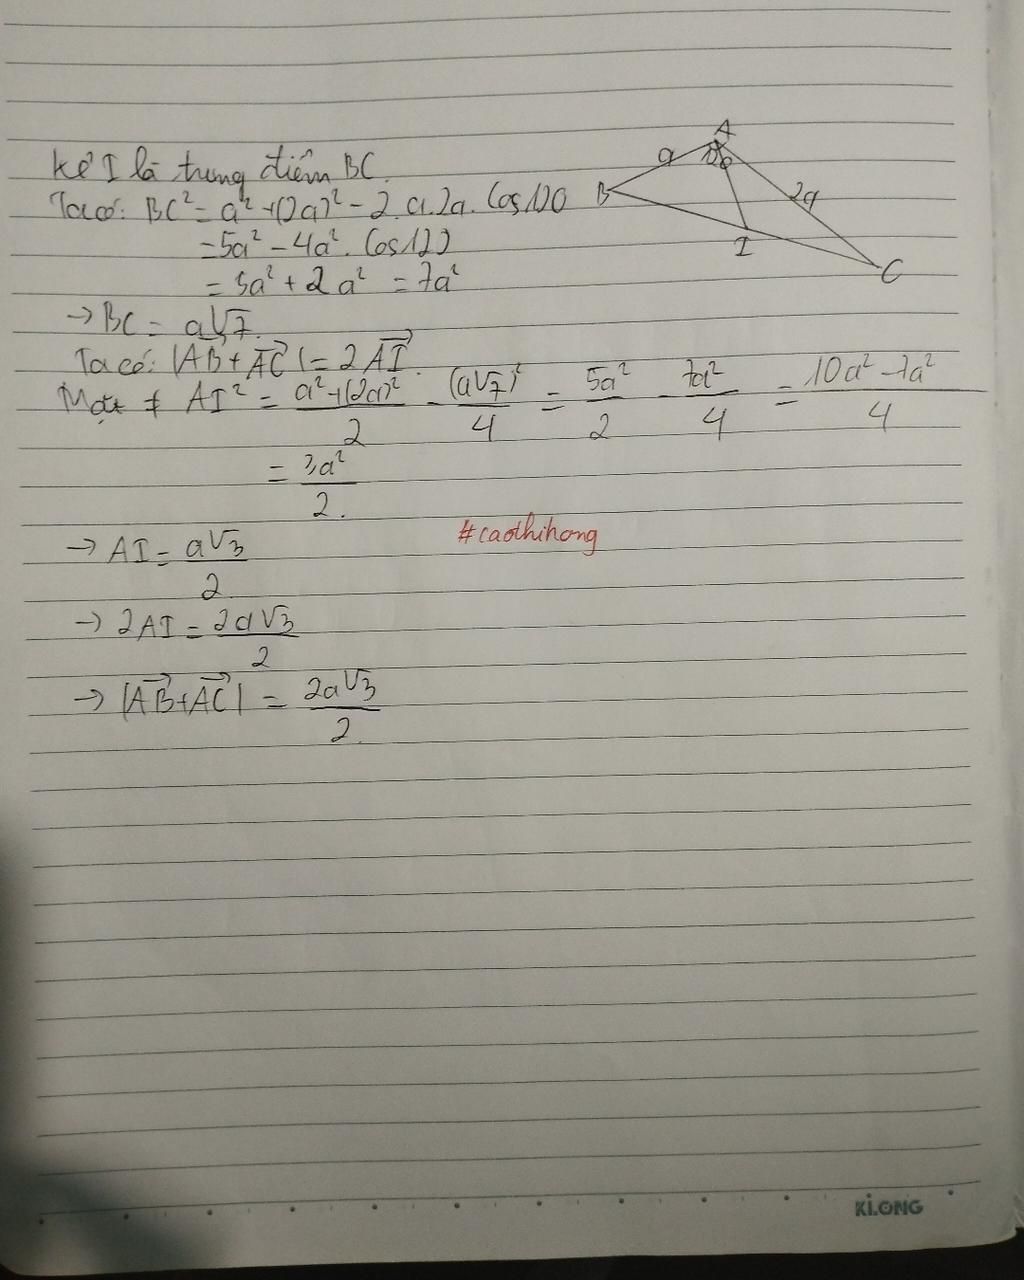 Kẻ I là trung điểm BC.
Ta có: BC² = a² + (2a)² - 2.a.2a. Cos120
= 5a² - 4a². Cos120
= 5a² + 2a² = 7a²
→ BC = a√7.
Ta có: |AB + AC| = 2AI.
Mặt ≠ AI² = (a² + (2a)²)/2 - (a√7)²/4 = 5a²/2 - 7a²/4 = (10a² - 7a²)/4
= 3a²/2.
→ AI = a√3/2
→ 2AI = 2a√3/2
→ |AB + AC| = 2a√3/2.
A
a
B
2a
I
C
#caothihong
KLONG